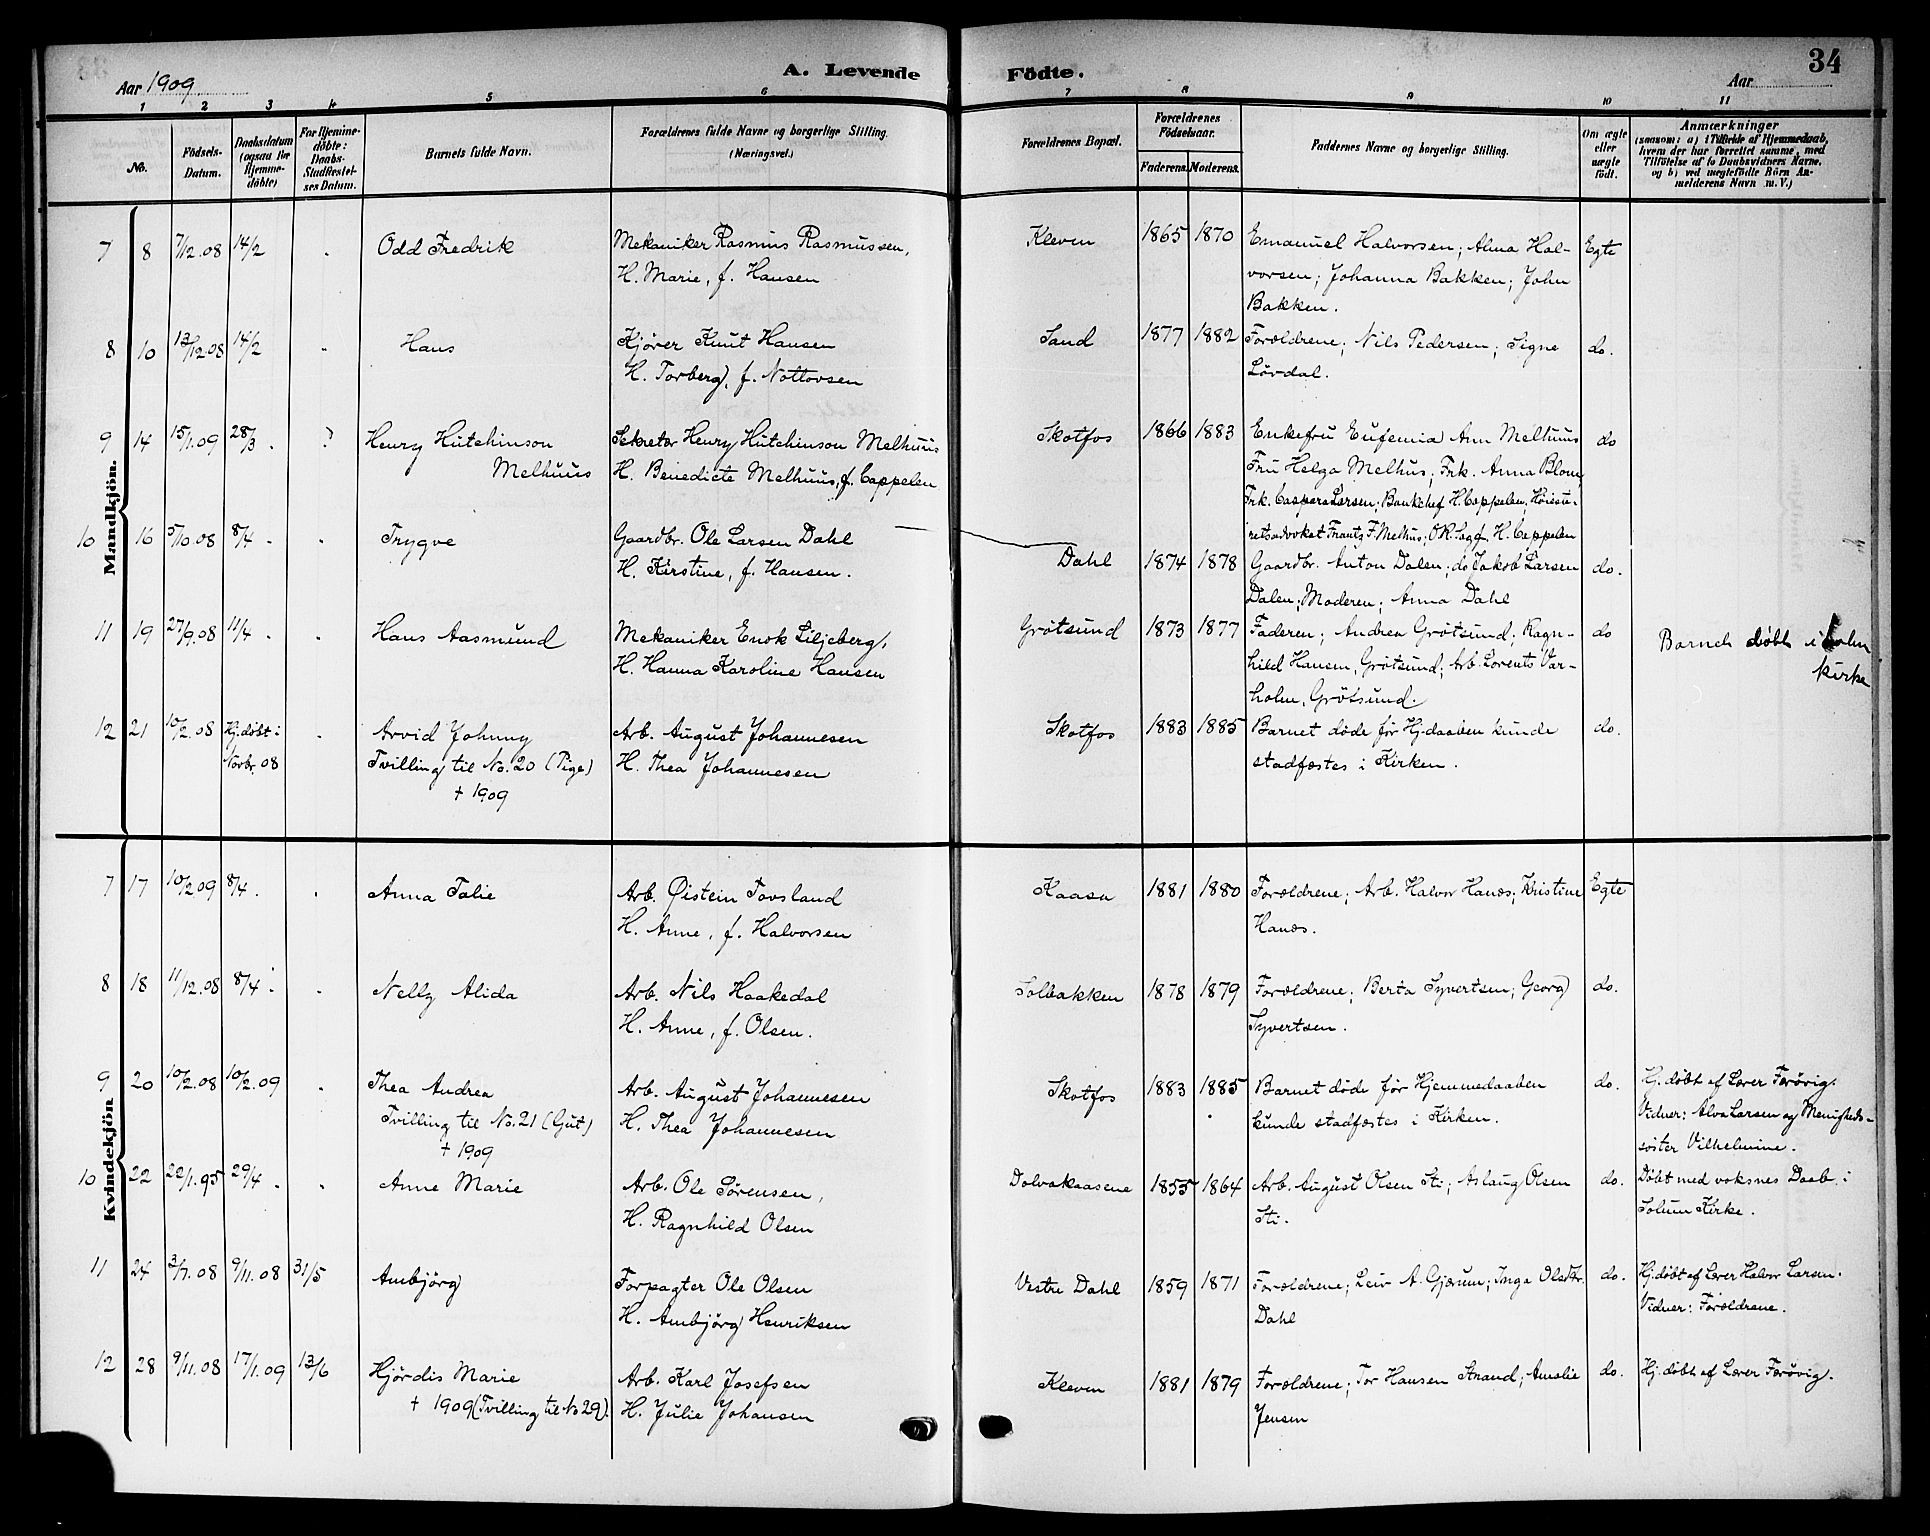 Aar 1909
A. Levende Födte.
Aar
34
1 2 3 4 5 6 7 8 9 10 11
No.
Födsels-Datum.
Daabsdatum (ogsaa for Hjemme-döbte)
For Hjemme-döbte: Daabs-Stadfæstel-ses Datum.
Barnets fulde Navn.
Forældrenes fulde Navne og borgerlige Stilling.
(Næringsvei.)
Forældrenes Bopæl.
Forældrenes Födselsaar.
Faderens. Moderens.
Faddernes Navne og borgerlige Stilling.
Om ægte eller uægte født.
Anmærkninger
(saasom: a) i Tilfælde af Hjemmedaab,
hvem der har forrettet samme, med
Tilföielse af to Daabsvidners Navne,
og b) ved uægtefödte Börn An-
melderens Navn m. V.)
Mandkjön.
7 8 7/12.08 14/2 Odd Fredrik Mekaniker Rasmus Rasmussen, Kleven 1865 1870 Emanuel Halvorsen; Alma Hal- Egte
H. Marie, f. Hansen vorsen; Johanna Bakken; John
Bakken.
8 10 13/12.08 14/2 Hans Kjörer Knut Hansen Sand 1877 1882 Forældrene; Nils Pedersen; Signe do.
H. Torberg, f. Nottovsen Lövdal.
9 14 15/1.09 28/3 ? Henry Hutchinson Sekretær Henry Hutchinson Melhuus Skotfos 1866 1883 Enkefru Eufemia Ann Melhuus do
Melhuus H. Benedicte Melhuus, f. Cappelen Fru Helga Melhus; Frk. Anna Blom,
Frk. Caspara Larsen; Bankchef H. Cappelen, Höieste-
retsadvokat Frants F. Melhus; O.R.Sagf. H. Cappelen
10 16 5/10.08 8/4 Trygve Gaardbr. Ole Larsen Dahl Dahl 1874 1878 Gaardbr. Anton Dalen; do Jakob Larsen do.
H. Kirstine, f. Hansen. Dalen; Moderen; Anna Dahl
11 19 27/9.08 11/4 Hans Aasmund Mekaniker Enok Liljeberg, Grötsund 1873 1877 Faderen; Andrea Grötsund; Ragn- do Barnet döbt i Solum
H. Hanna Karoline Hansen hild Hansen, Grötsund; Arb. Lorents Var- kirke
holm, Grötsund.
12 21 10/2.08 Hj.døbt i Arvid Johnny Arb. August Johannesen Skotfos 1883 1885 Barnet døde før Hj.daaben kunde do.
Novbr. 08 Tvilling til No. 20 (Pige) H. Thea Johannesen stadfæstes i Kirken.
+ 1909
Kvindekjön
7 17 10/2 09 8/4. Anna Talie Arb. Øistein Tovsland Kaasa 1881 1880 Forældrene; Arb. Halvor Hanæs; Kristine Egte
H. Anne, f. Halvorsen Hanæs.
8 18 11/12.08 8/4 Nelly Alida Arb. Nils Haakedal Solbakken 1878 1879 Forældrene; Berta Syvertsen; Georg do.
H. Anne, f. Olsen. Syvertsen.
9 20 10/2.08 10/2.09 Thea Andrea Arb. August Johannesen Skotfos 1883 1885 Barnet døde før Hjemmedaaben do. Hj.døbt af Lærer Førövig.
Tvilling til No. 21 (Gut) H. Thea Johannesen kunde stadfæstes i Kirken. Vidner: Alva Larsen og Menigheds-
+ 1909 söster Vilhelmine.
10 22 22/1.95 29/4 Anne Marie Arb. Ole Sørensen, Dolvakaasene 1855 1864 Arb. August Olsen Sti; Aslaug Olsen do. Döbt med voksnes Daab i
H. Ragnhild Olsen Sti. Solum Kirke.
11 24 3/7.08 9/11.08 31/5 Ambjörg Forpagter Ole Olsen Vestre Dahl 1859 1871 Forældrene; Leiv A. Gjærum; Inga Olsdtr. do. Hj.døbt af Lærer Halvor Larsen.
H. Ambjörg Henriksen Dahl Vidner: Forældrene.
12 28 9/11.08 17/1.09 13/6 Hjördis Marie Arb. Karl Josefsen Kleven 1881 1879 Forældrene; Tor Hansen Strand; Amalie do. Hj.døbt af Lærer Førövig.
+ 1909 (Tvilling til No 29). H. Julie Johansen Jensen